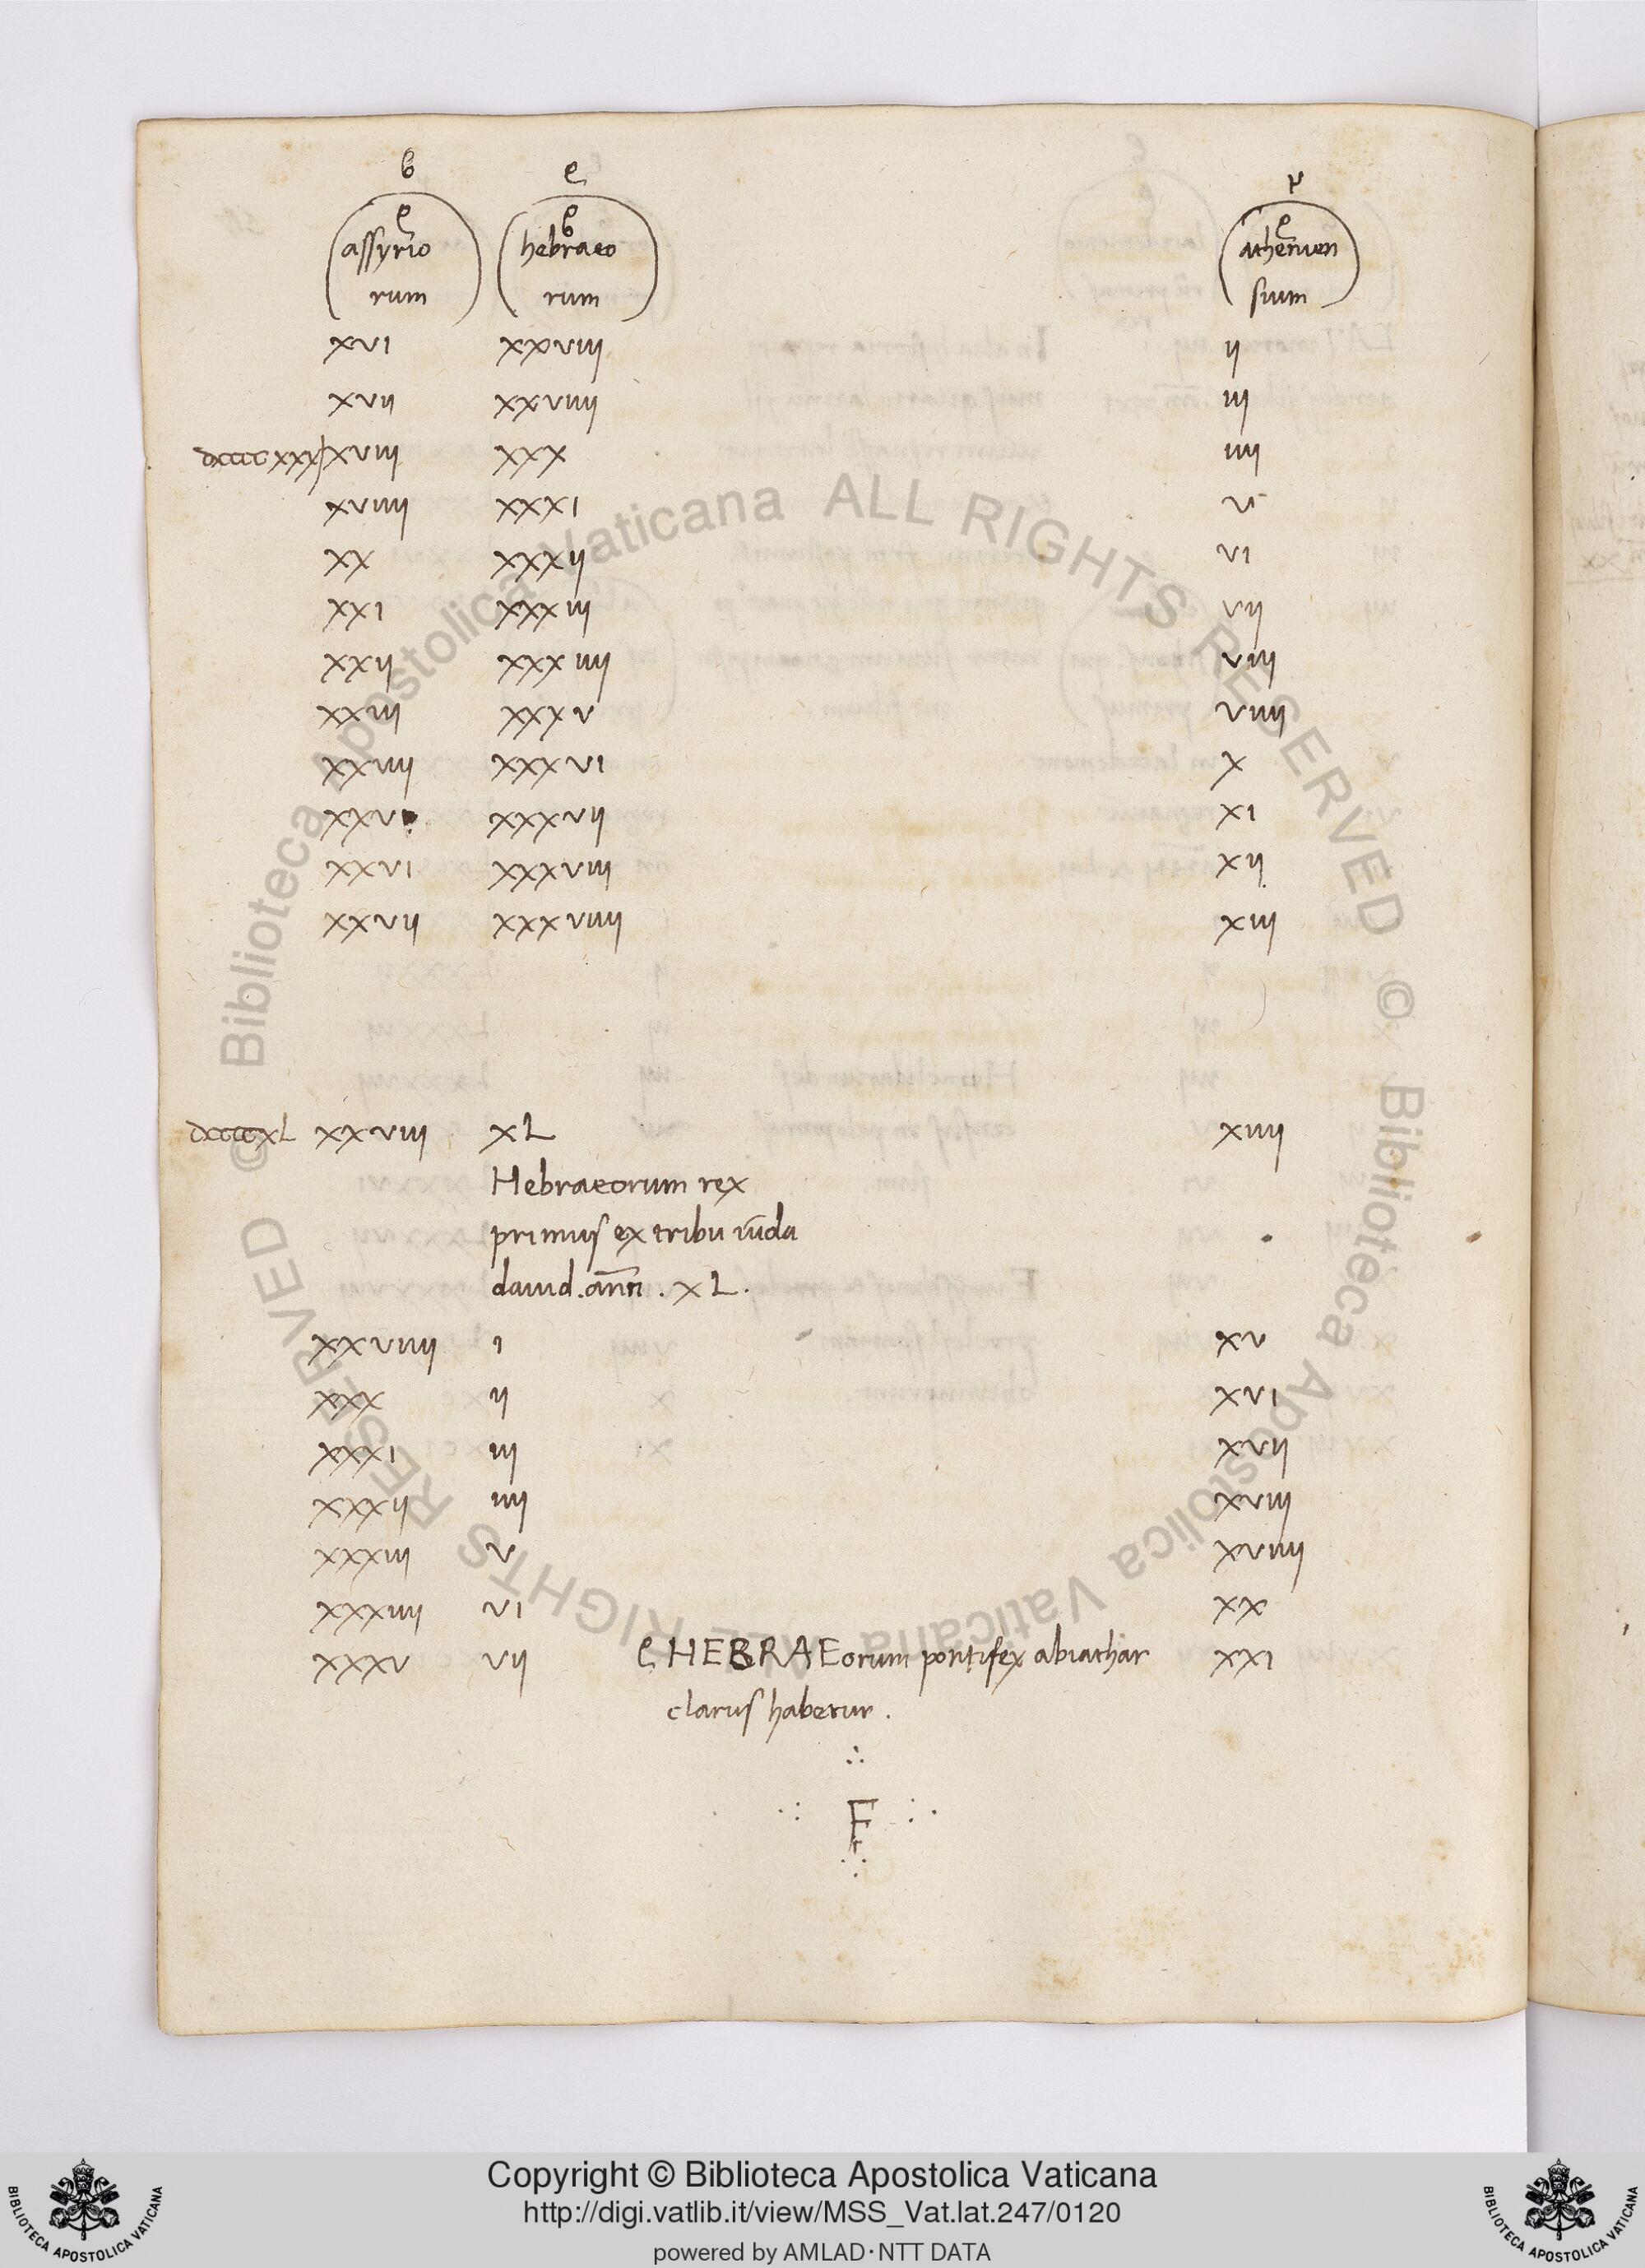 b e r
e e e
assyrio hebraeo athenien
rum rum sium
xvi xxviii ii
xvii xxviiii iii
dccccxxx xviii xxx iiii
xviiii xxxi v
xx xxxii vi
xxi xxxiii vii
xxii xxxiiii viii
xxiii xxxv viiii
xxiiii xxxvi x
xxv xxxvii xi
xxvi xxxviii xii
xxvii xxxviiii xiii
dccccxL xxviii xL xiiii
Hebraeorum rex
primus ex tribu iuda
dauid . ann̄ . xL .
xxviiii i xv
xxx ii xvi
xxxi iii xvii
xxxii iiii xviii
xxxiii v xviiii
xxxiiii vi xx
xxxv vii e HEBRAEorum pontifex abiathar xxi
clarus habetur .
F
© Biblioteca Apostolica Vaticana ALL RIGHTS RESERVED
© Biblioteca Apostolica Vaticana ALL RIGHTS RESERVED
Copyright © Biblioteca Apostolica Vaticana
http://digi.vatlib.it/view/MSS_Vat.lat.247/0120
powered by AMLAD·NTT DATA
BIBLIOTECA APOSTOLICA VATICANA
BIBLIOTECA APOSTOLICA VATICANA